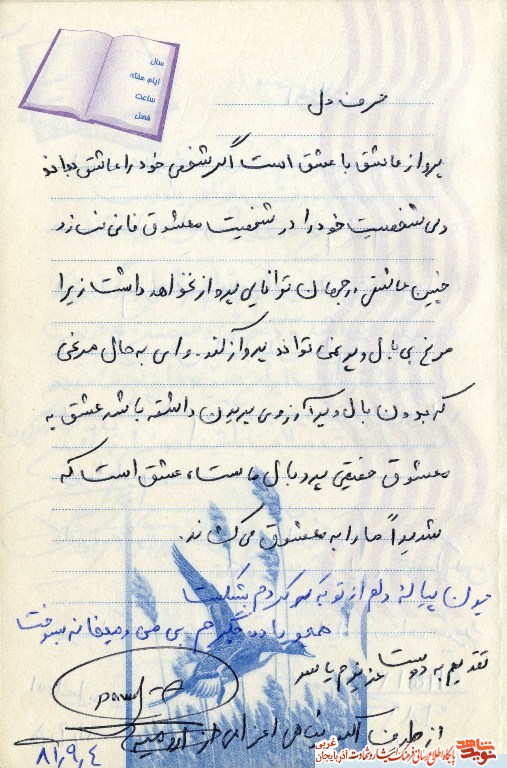 سال
ایام هفته
ساعت
فصل
حرف دل
پرواز عاشق با عشق است اگر شخصی خود را عاشق بداند
ولی شخصیت خود را در شخصیت معشوق فانی نسازد
چنین عاشقی در جهان توانایی پرواز نخواهد داشت زیرا
مرغ بی بال و پر نمی تواند پرواز کند. وای به حال مرغی
که بدون بال و پر آرزوی پریدن داشته باشد عشق به
معشوق حقیقی پر و بال ماست، عشق است که
شدیداً ما را به معشوق می کشاند.
چون پیاله دلم از تو که کردم بشکست
همچو باده جگرم بی می و میخانه بسوخت
تقدیم به دوست عزیزم یاسر
از طرف
۸۱,۹,٤
نوید شاهد
پایگاه اطلاع رسانی فرهنگ ایثار و شهادت آذربایجان غربی